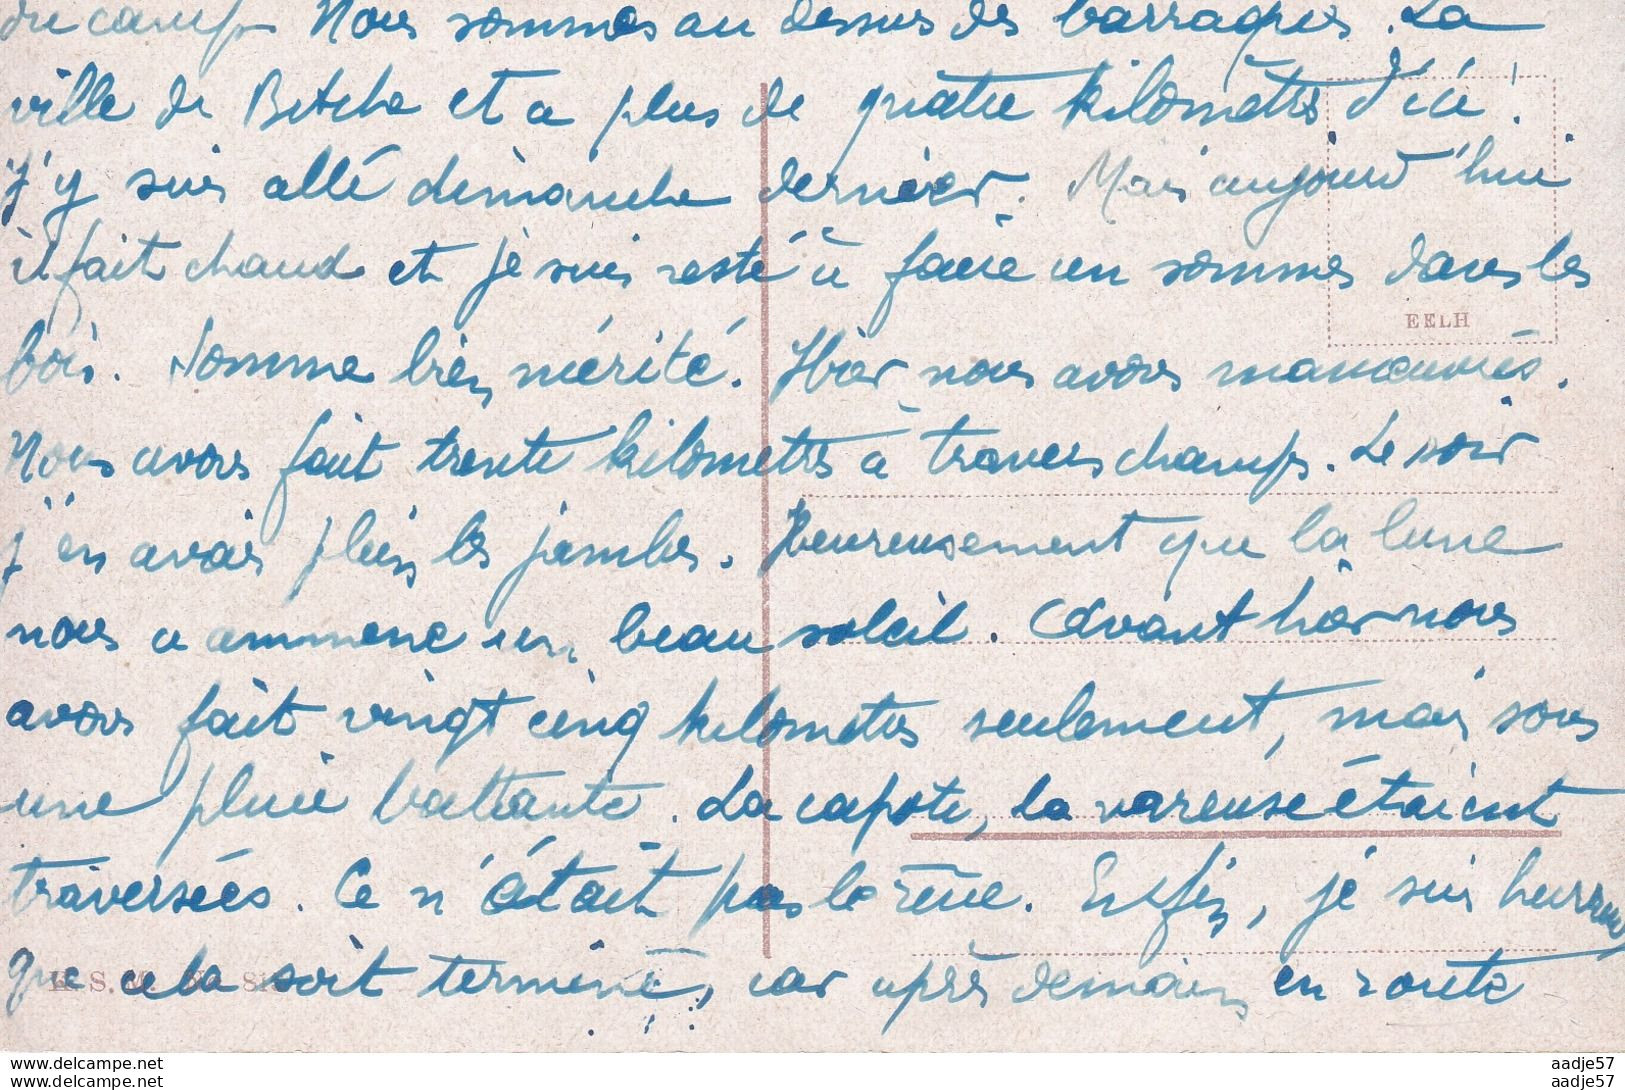 du camp Nous sommes au dessus des barraques. La
ville de Bitche et a plus de quatre kilomètres d'ici !
J'y suis allé dimanche dernier. Mais aujourd'hui
il fait chaud et je suis resté à faire un somme dans les
bois. Somme bien mérité. Hier nous avons manoeuvrés.
Nous avons fait trente kilometres à travers champs. Le soir
j'en avais plein les jambes. Heureusement que la lune
nous a ammené un beau soleil. Avant hier nous
avons fait vingt cinq kilometres seulement, mais sous
une pluie battante. La capote, la vareuse étaient
traversées. Ce n'était pas le rêve. Enfin, je suis heureux
que cela soit terminé, car après demain en route
EELH
aadje57
aadje57
aadje57
aadje57